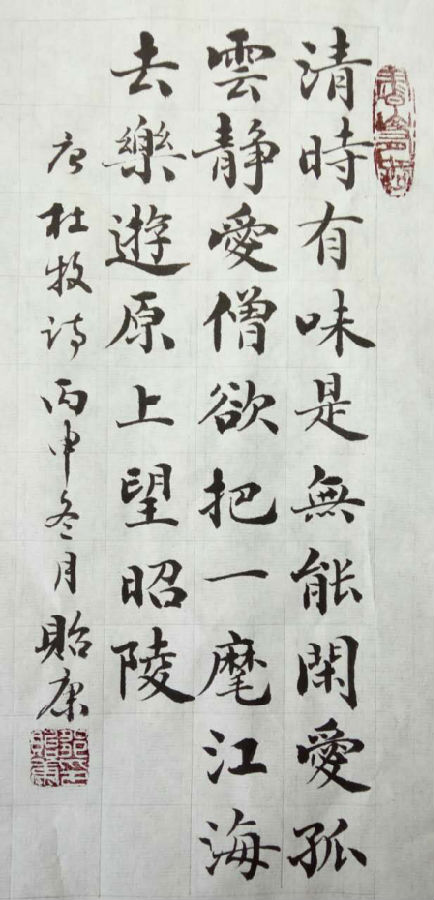 清時有味是無能閑愛孤
雲靜愛僧欲把一麾江海
去樂遊原上望昭陵
唐杜牧詩丙申冬月貽康